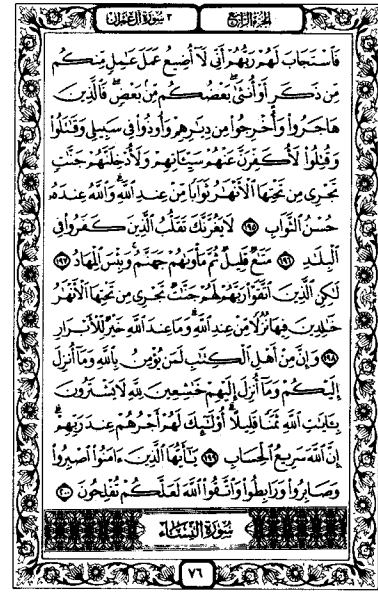 الجزء الرابع
٣ سورة آل عمران
فَٱسْتَجَابَ لَهُمْ رَبُّهُمْ أَنِّي لَآ أُضِيعُ عَمَلَ عَٰمِلٍ مِّنكُم
مِّن ذَكَرٍ أَوْ أُنثَىٰ بَعْضُكُم مِّنۢ بَعْضٍ فَٱلَّذِينَ
هَاجَرُوا۟ وَأُخْرِجُوا۟ مِن دِيَٰرِهِمْ وَأُوذُوا۟ فِي سَبِيلِي وَقَٰتَلُوا۟
وَقُتِلُوا۟ لَأُكَفِّرَنَّ عَنْهُمْ سَيِّـَٔاتِهِمْ وَلَأُدْخِلَنَّهُمْ جَنَّٰتٍ
تَجْرِي مِن تَحْتِهَا ٱلْأَنْهَٰرُ ثَوَابًا مِّنْ عِندِ ٱللَّهِ وَٱللَّهُ عِندَهُۥ
حُسْنُ ٱلثَّوَابِ ١٩٥ لَا يَغُرَّنَّكَ تَقَلُّبُ ٱلَّذِينَ كَفَرُوا۟ فِي
ٱلْبِلَٰدِ ١٩٦ مَتَٰعٌ قَلِيلٌ ثُمَّ مَأْوَىٰهُمْ جَهَنَّمُ وَبِئْسَ ٱلْمِهَادُ ١٩٧
لَٰكِنِ ٱلَّذِينَ ٱتَّقَوْا۟ رَبَّهُمْ لَهُمْ جَنَّٰتٌ تَجْرِي مِن تَحْتِهَا ٱلْأَنْهَٰرُ
خَٰلِدِينَ فِيهَا نُزُلًا مِّنْ عِندِ ٱللَّهِ وَمَا عِندَ ٱللَّهِ خَيْرٌ لِّلْأَبْرَارِ
١٩٨ وَإِنَّ مِنْ أَهْلِ ٱلْكِتَٰبِ لَمَن يُؤْمِنُ بِٱللَّهِ وَمَآ أُنزِلَ
إِلَيْكُمْ وَمَآ أُنزِلَ إِلَيْهِمْ خَٰشِعِينَ لِلَّهِ لَا يَشْتَرُونَ
بِـَٔايَٰتِ ٱللَّهِ ثَمَنًا قَلِيلًا أُو۟لَٰٓئِكَ لَهُمْ أَجْرُهُمْ عِندَ رَبِّهِمْ
إِنَّ ٱللَّهَ سَرِيعُ ٱلْحِسَابِ ١٩٩ يَٰٓأَيُّهَا ٱلَّذِينَ ءَامَنُوا۟ ٱصْبِرُوا۟
وَصَابِرُوا۟ وَرَابِطُوا۟ وَٱتَّقُوا۟ ٱللَّهَ لَعَلَّكُمْ تُفْلِحُونَ ٢٠٠
سُورَةُ النِّسَاءِ
٧٦